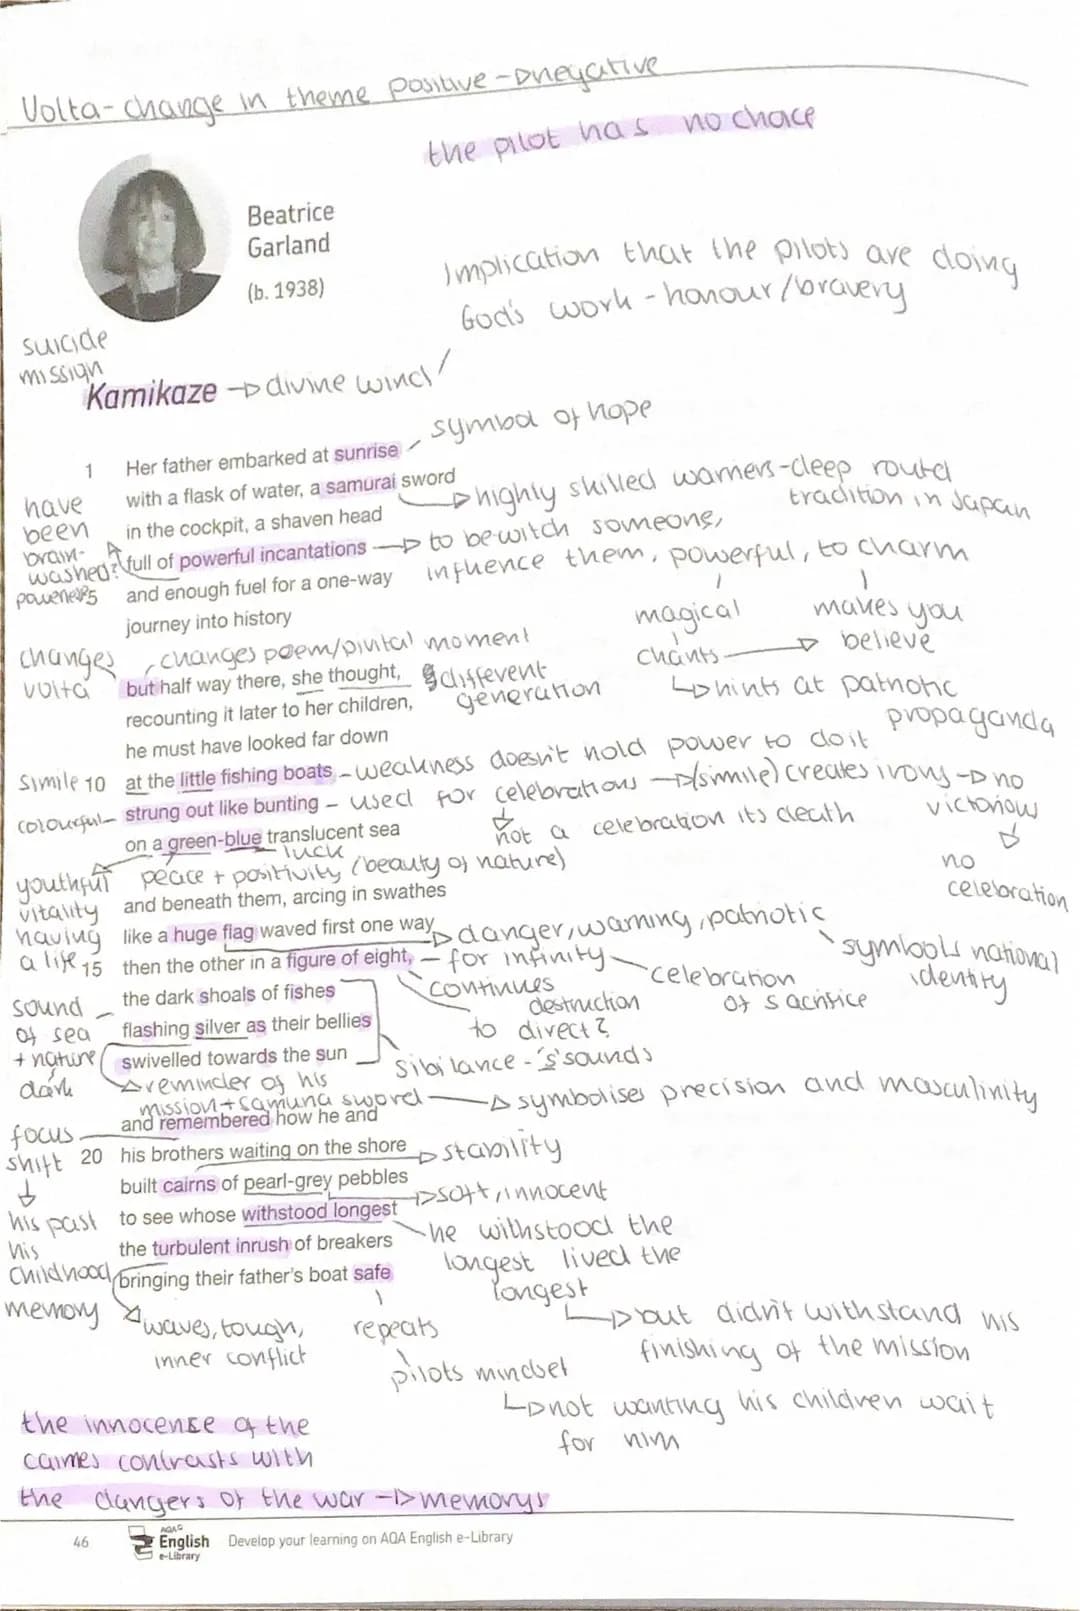 Volta - change in theme positive -> negative
the pilot has no choice
Beatrice
Garland
(b. 1938)
Implication that the pilots are doing
God's work - honour/bravery
suicide
mission
Kamikaze -> divine wind
symbol of hope
1 Her father embarked at sunrise
with a flask of water, a samurai sword
highly skilled warriers - deep routed
tradition in Japan
in the cockpit, a shaven head
have
been
brain-
washed?
full of powerful incantations -> to bewitch someone,
influence them, powerful, to charm
powerless
5 and enough fuel for a one-way
journey into history
magical
chants
makes you
believe
hints at patriotic
propaganda
changes
volta
changes poem/pivital moment
but half way there, she thought,
different
generation
recounting it later to her children,
he must have looked far down
simile
10 at the little fishing boats - weakness doesn't hold power to do it
colourful
strung out like bunting - used for celebrations -> (simile) creates irony -> no
victorious
no
celebration
not a celebration its death
on a green-blue translucent sea
luck
peace + positivity (beauty of nature)
youthful
vitality
having
a life
and beneath them, arcing in swathes
like a huge flag waved first one way
danger, warning, patriotic
symbols national
identity
15 then the other in a figure of eight, - for infinity
celebration
of sacrifice
continues
destruction
to direct?
the dark shoals of fishes
sound
of sea
+ nature
dark
flashing silver as their bellies
swivelled towards the sun
sibilance - 's' sounds
reminder of his
mission + samuria sword
symbolises precision and masculinity
and remembered how he and
focus
shift
his past
his
childhood
memory
20 his brothers waiting on the shore
stability
built cairns of pearl-grey pebbles
soft, innocent
to see whose withstood longest
he withstood the
longest lived the
longest
but didn't withstand his
finishing of the mission
the turbulent inrush of breakers
bringing their father's boat safe
waves, tough,
inner conflict
repeats
pilots mindset
not wanting his children wait
for him
the innocense of the
cairnes contrasts with
the dangers of the war -> memorys
46
AQA
English
e-Library
Develop your learning on AQA English e-Library